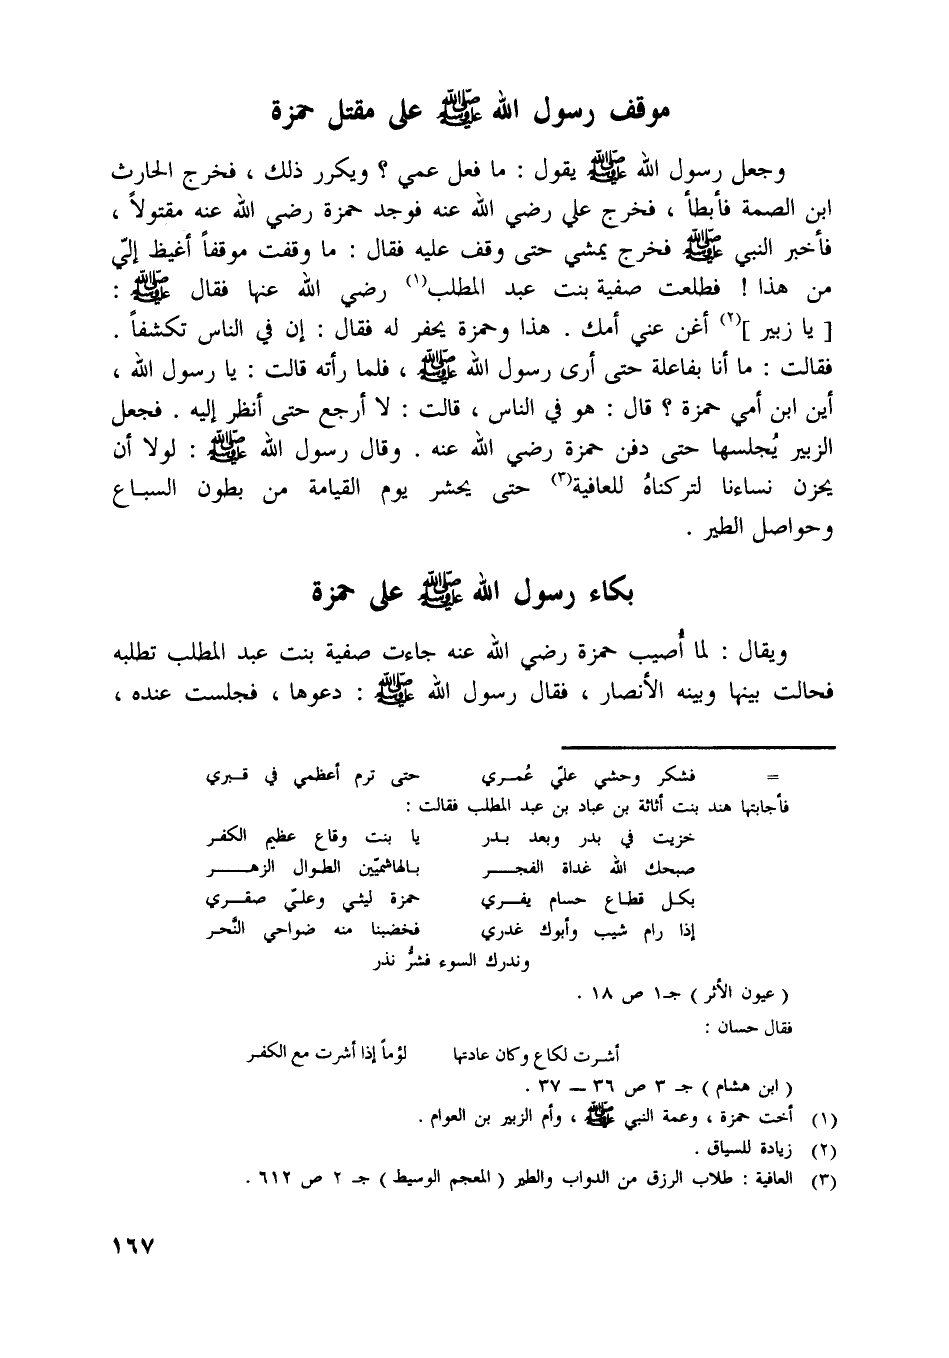 موقف رسول الله ﷺ على مقتل حمزة
وجعل رسول الله ﷺ يقول : ما فعل عمي ؟ ويكرر ذلك ، فخرج الحارث
ابن الصمة فأبطأ ، فخرج علي رضي الله عنه فوجد حمزة رضي الله عنه مقتولاً ،
فأخبر النبي ﷺ فخرج يمشي حتى وقف عليه فقال : ما وقفت موقفاً أغيظ إليّ
من هذا ! فطلعت صفية بنت عبد المطلب(١) رضي الله عنها فقال ﷺ :
[ يا زبير ](٢) أغن عني أمك . هذا وحمزة يحفر له فقال : إن في الناس تكشفاً .
فقالت : ما أنا بفاعلة حتى أرى رسول الله ﷺ ، فلما رأته قالت : يا رسول الله ،
أين ابن أمي حمزة ؟ قال : هو في الناس ، قالت : لا أرجع حتى أنظر إليه . فجعل
الزبير يُجلسها حتى دفن حمزة رضي الله عنه . وقال رسول الله ﷺ : لولا أن
يحزن نساءنا لتركناهُ للعافية(٣) حتى يحشر يوم القيامة من بطون السباع
وحواصل الطير .
بكاء رسول الله ﷺ على حمزة
ويقال : لما أُصيب حمزة رضي الله عنه جاءت صفية بنت عبد المطلب تطلبه
فحالت بينها وبينه الأنصار ، فقال رسول الله ﷺ : دعوها ، فجلست عنده ،
= فشكر وحشي عليّ عُمـري حتى ترم أعظمي في قـبري
فأجابتها هند بنت أثاثة بن عباد بن عبد المطلب فقالت :
خزيت في بدر وبعد بـدر يا بنت وقاع عظيم الكفـر
صبحك الله غداة الفجـــر بـالهاشميّين الطـوال الزهـــر
بكـل قطـاع حسام يفـري حمزة ليثـي وعلـيّ صقـري
إذا رام شيب وأبوك غدري فخضبنا منه ضواحي النَّحـر
وندرك السوء فشرُّ نذر
( عيون الأثر ) جـ١ ص ١٨ .
فقال حسان :
أشـرت لكاع وكان عادتها لؤماً إذا أشرت مع الكفـر
( ابن هشام ) جـ ٣ ص ٣٦ – ٣٧ .
(١) أخت حمزة ، وعمة النبي ﷺ ، وأم الزبير بن العوام .
(٢) زيادة للسياق .
(٣) العافية : طلاب الرزق من الدواب والطير ( المعجم الوسيط ) جـ ٢ ص ٦١٢ .
١٦٧